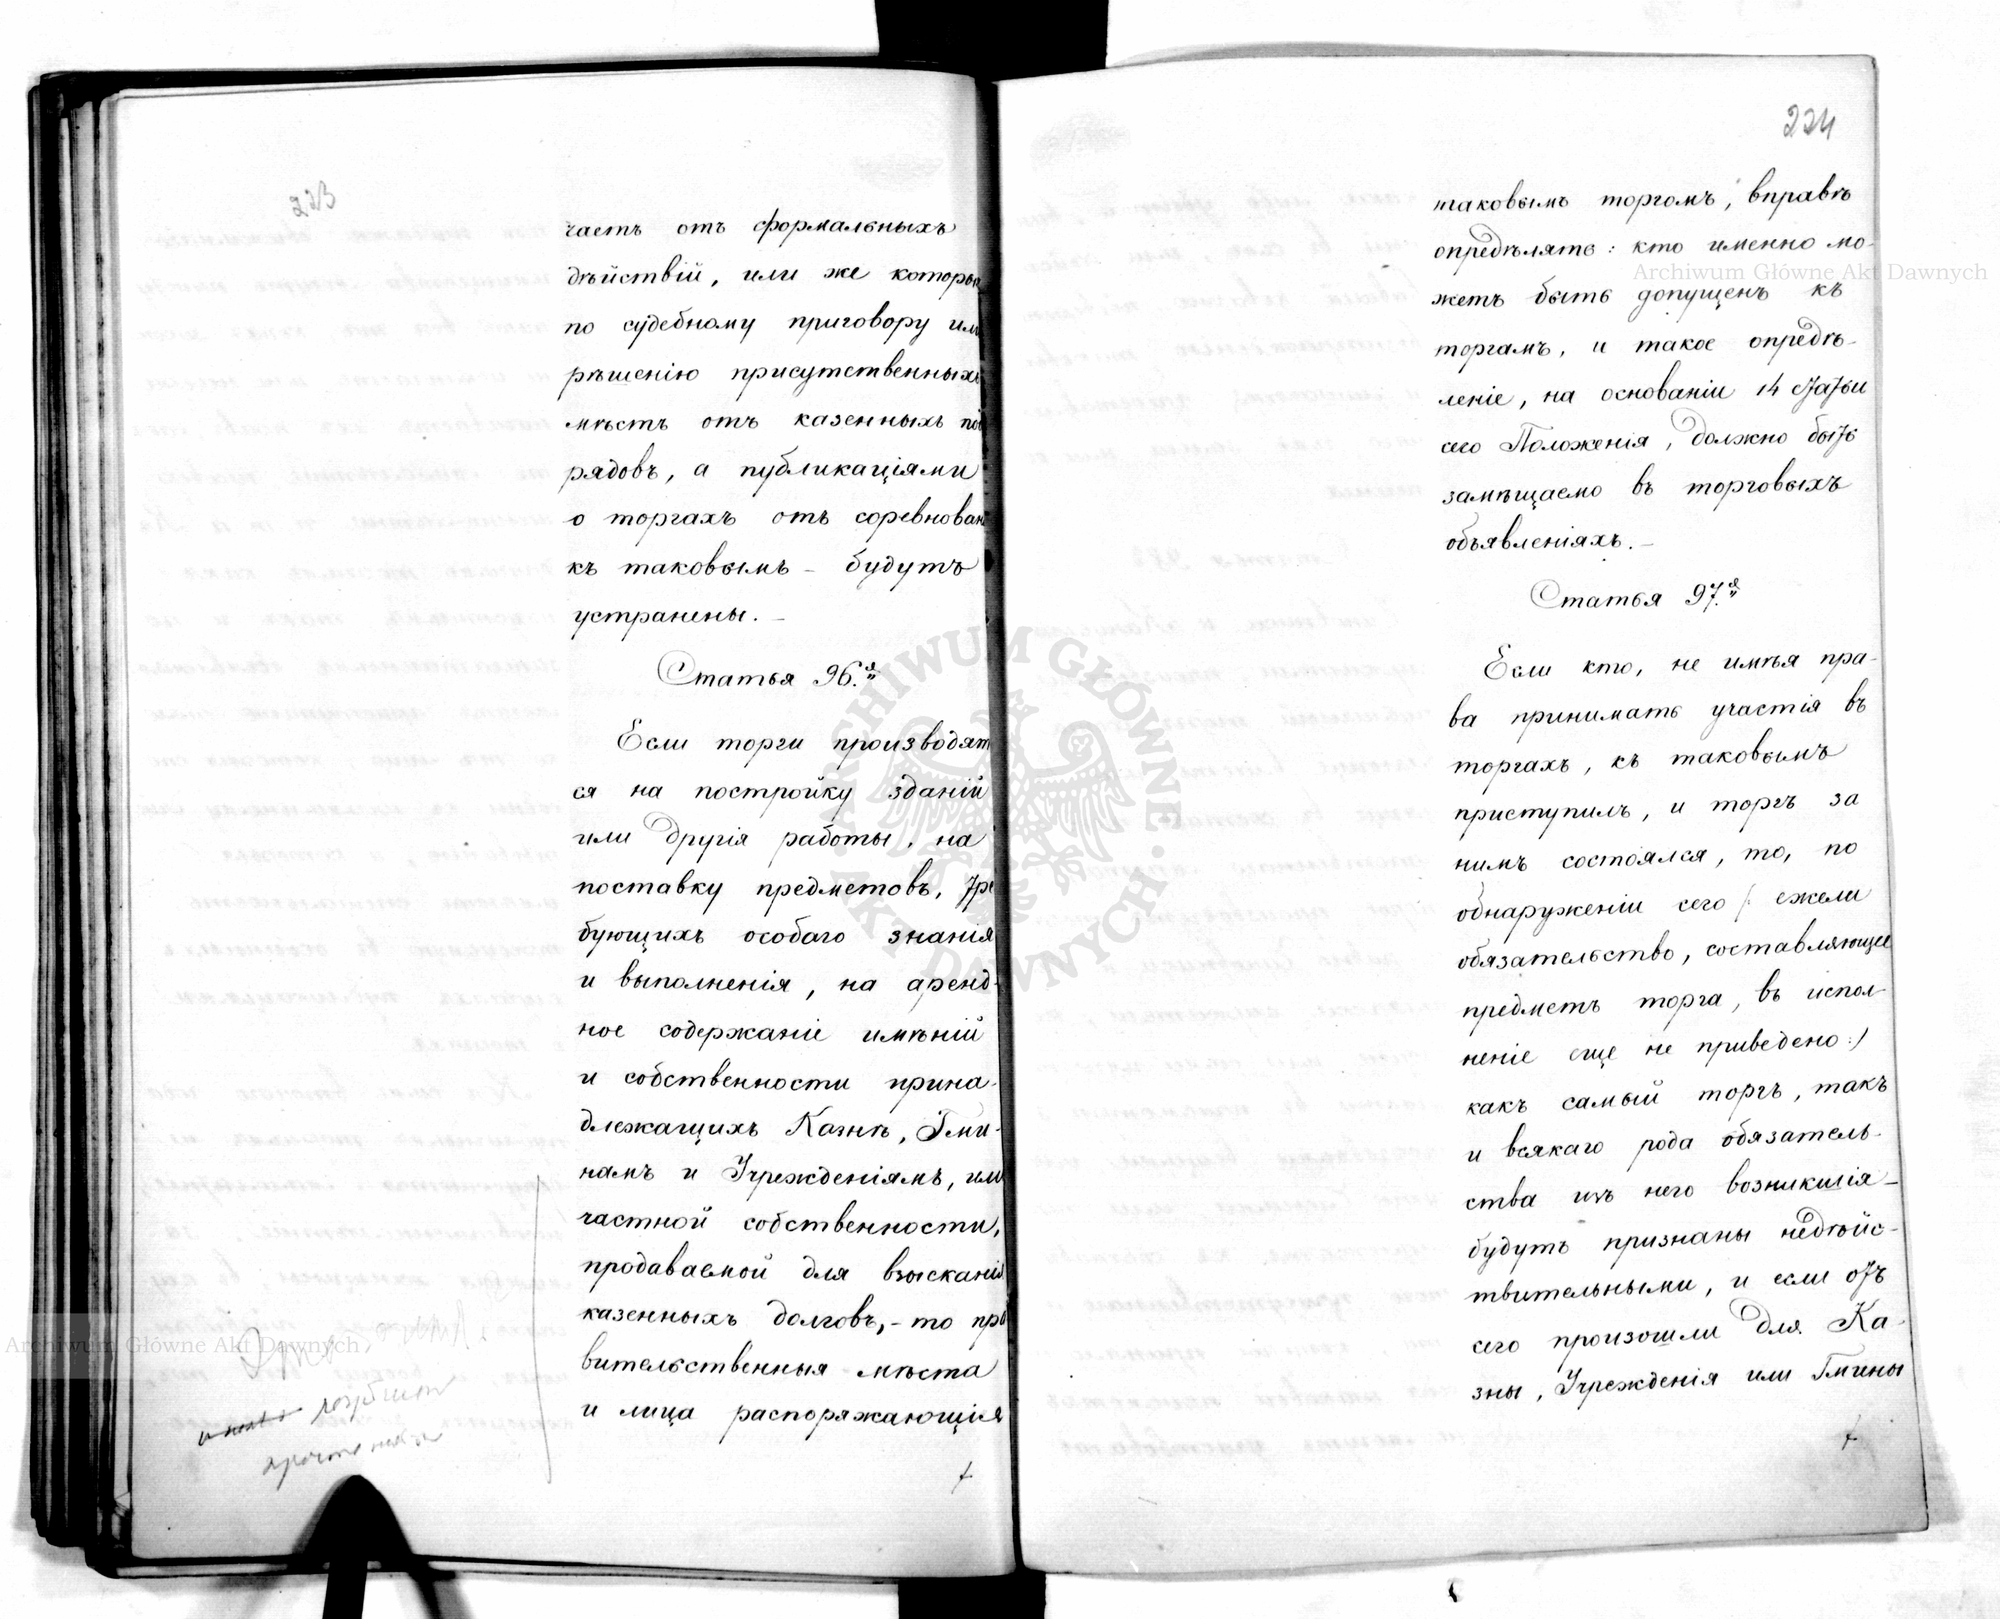 223
частъ отъ формальныхъ
дѣйствій, или же которы
по судебному приговору или
рѣшенію присутственныхъ
мѣстъ отъ казенныхъ под
рядовъ, а публикаціями
о торгахъ отъ соревнован
къ таковымъ – будутъ
устранены. –
Статья 96.я
Если торги производят
ся на постройку зданій
или другія работы, на
поставку предметовъ, тре
бующихъ особаго знанія
и выполненія, на аренд-
ное содержаніе имѣній
и собственности прина-
длежащихъ Казнѣ, Гми-
намъ и Учрежденіямъ, или
частной собственности,
продаваемой для взысканія
казенныхъ долговъ, – то пра
вительственныя мѣста
и лица распоряжающіяся
224
таковымъ торгомъ, вправѣ
опредѣлять: кто именно мо-
жетъ быть допущенъ къ
торгамъ, и такое опредѣ-
леніе, на основаніи 14 статьи
сего Положенія, должно быть
замѣщаемо въ торговыхъ
объявленіяхъ. –
Статья 97.я
Если кто, не имѣя пра-
ва принимать участія въ
торгахъ, къ таковымъ
приступилъ, и торгъ за
нимъ состоялся, то, по
обнаруженіи сего /: ежели
обязательство, составляющее
предметъ торга, въ испол-
неніе еще не приведено :/
какъ самый торгъ, такъ
и всякаго рода обязатель-
ства изъ него возникшія –
будутъ признаны недѣйс-
твительными, и если отъ
сего произошли для Ка-
зны, Учрежденія или Гмины
Archiwum Główne Akt Dawnych
Archiwum Główne Akt Dawnych
ARCHIWUM GŁÓWNE
AKT DAWNYCH